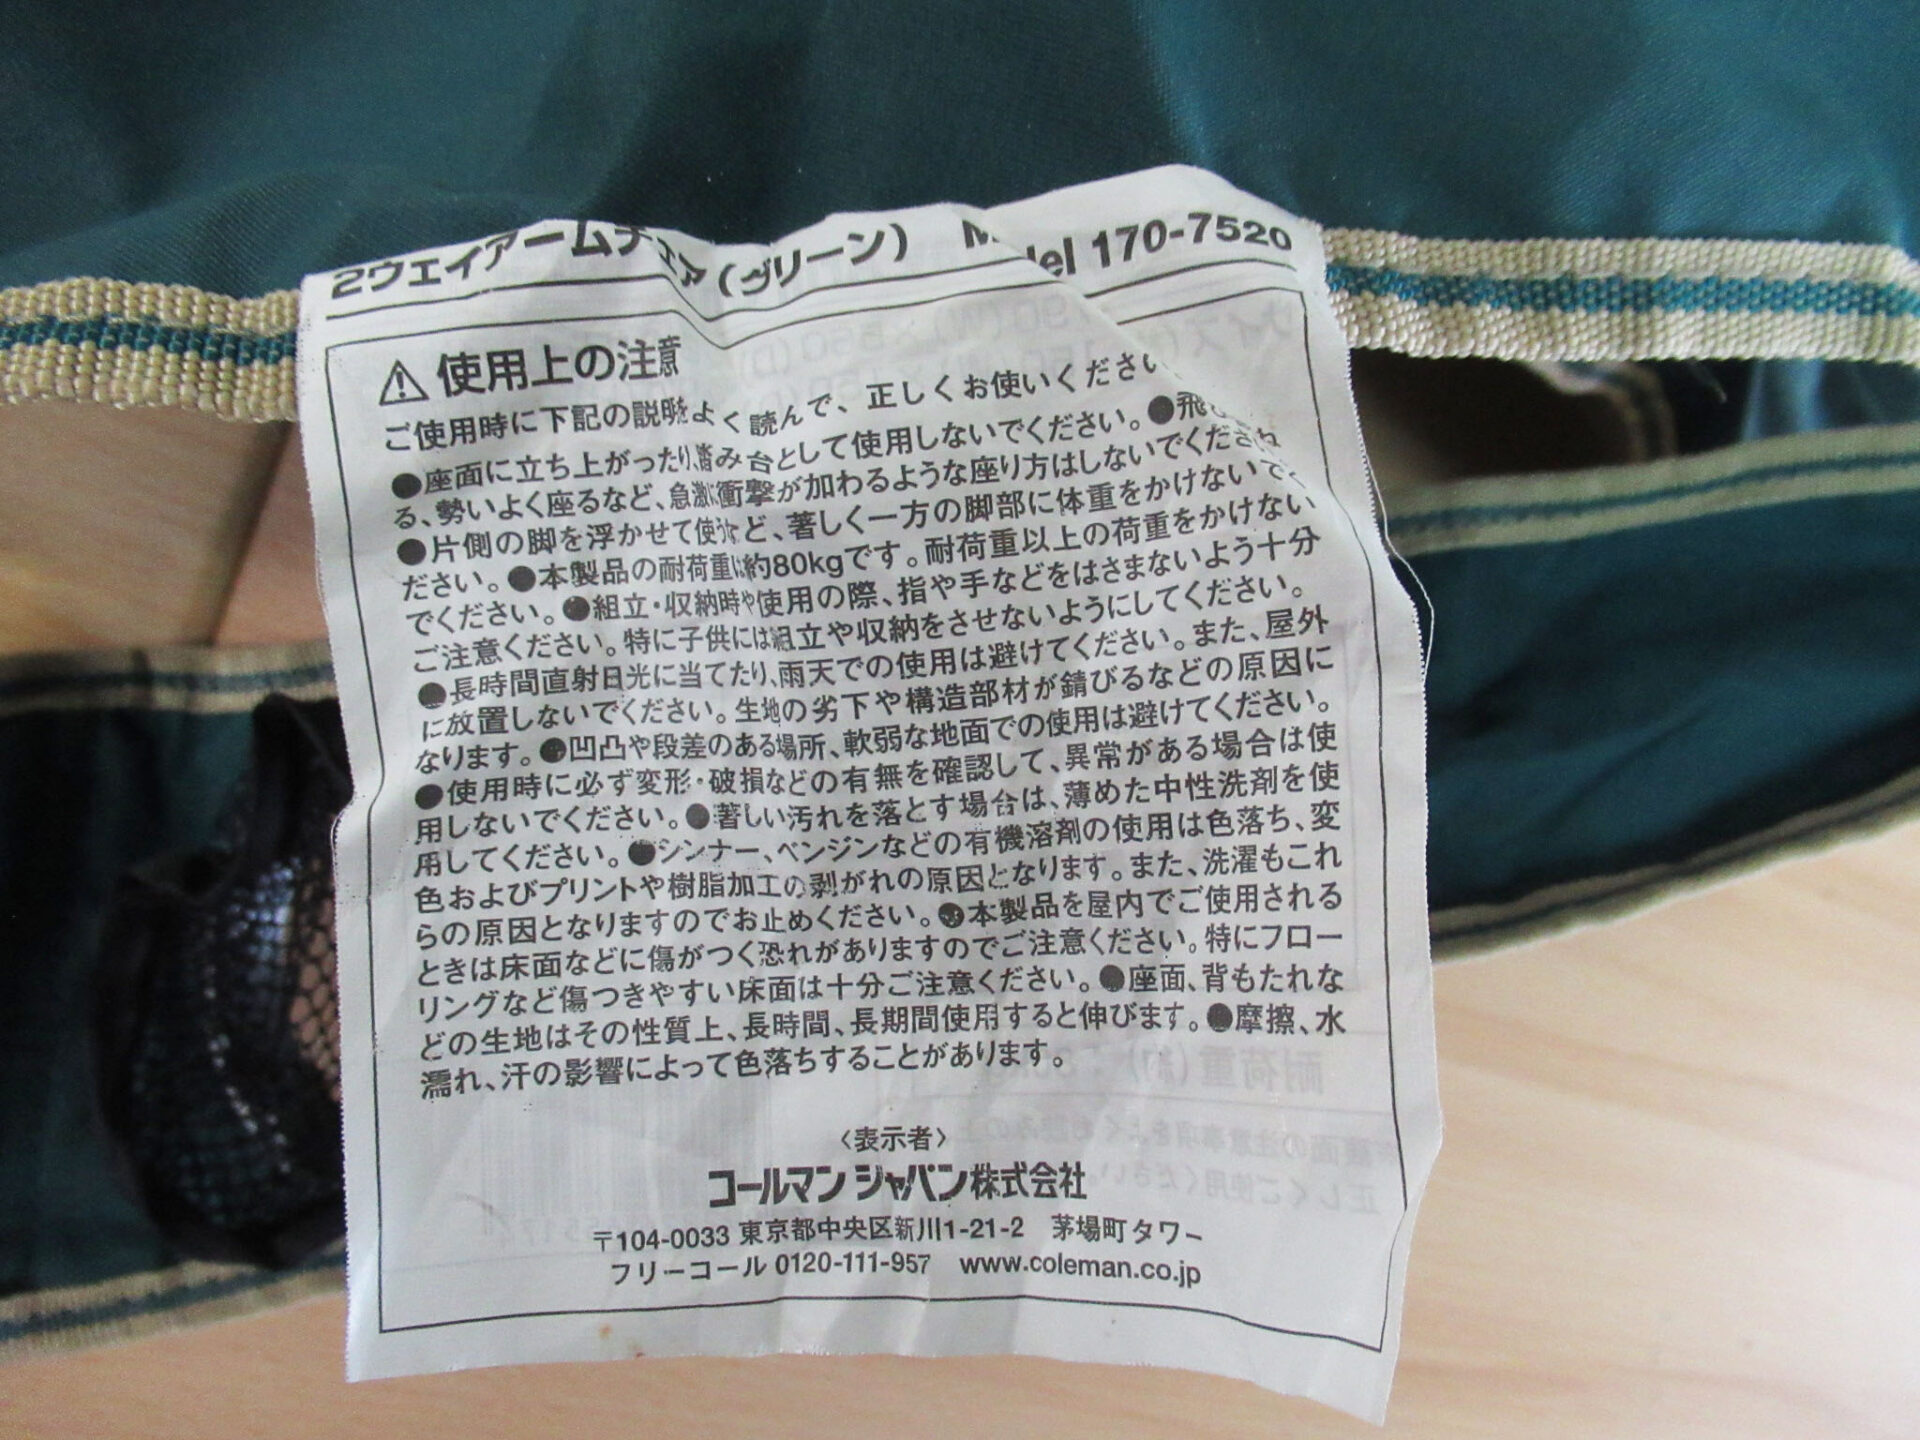 2ウェイアームチェア(グリーン) Model 170-7520
⚠使用上の注意
ご使用時に下記の説明をよく読んで、正しくお使いください
●座面に立ち上がったり、踏み台として使用しないでください。●飛び
る、勢いよく座るなど、急激に衝撃が加わるような座り方はしないでくださ
●片側の脚を浮かせて使うなど、著しく一方の脚部に体重をかけないで
ださい。●本製品の耐荷重は約80kgです。耐荷重以上の荷重をかけない
でください。●組立・収納時や使用の際、指や手などをはさまないよう十分
ご注意ください。特に子供には組立や収納をさせないようにしてください。
●長時間直射日光に当てたり、雨天での使用は避けてください。また、屋外
に放置しないでください。生地の劣下や構造部材が錆びるなどの原因に
なります。●凹凸や段差のある場所、軟弱な地面での使用は避けてください。
●使用時に必ず変形・破損などの有無を確認して、異常がある場合は使
用しないでください。●著しい汚れを落とす場合は、薄めた中性洗剤を使
用してください。●シンナー、ベンジンなどの有機溶剤の使用は色落ち、変
色およびプリントや樹脂加工の剥がれの原因となります。また、洗濯もこれ
らの原因となりますのでお止めください。●本製品を屋内でご使用される
ときは床面などに傷がつく恐れがありますのでご注意ください。特にフロー
リングなど傷つきやすい床面は十分ご注意ください。●座面、背もたれな
どの生地はその性質上、長時間、長期間使用すると伸びます。●摩擦、水
濡れ、汗の影響によって色落ちすることがあります。
〈表示者〉
コールマン ジャパン株式会社
〒104-0033 東京都中央区新川1-21-2 茅場町タワー
フリーコール 0120-111-957 www.coleman.co.jp